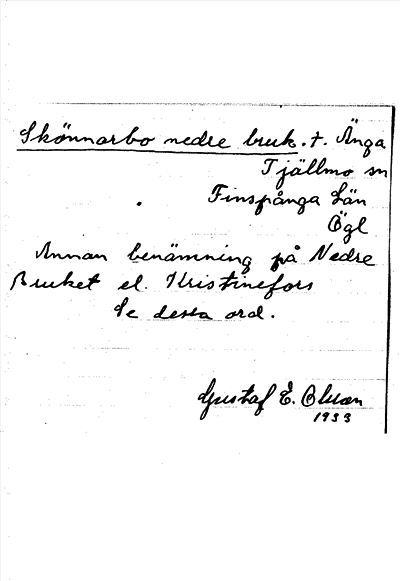 Skönnarbo nedre bruk. t. Änga
Tjällmo sn
Finspånga Län
Ögl
Annan benämning på Nedre
Bruket el. Kristinefors
Se dessa ord.
Gustaf E. Olsson
1933